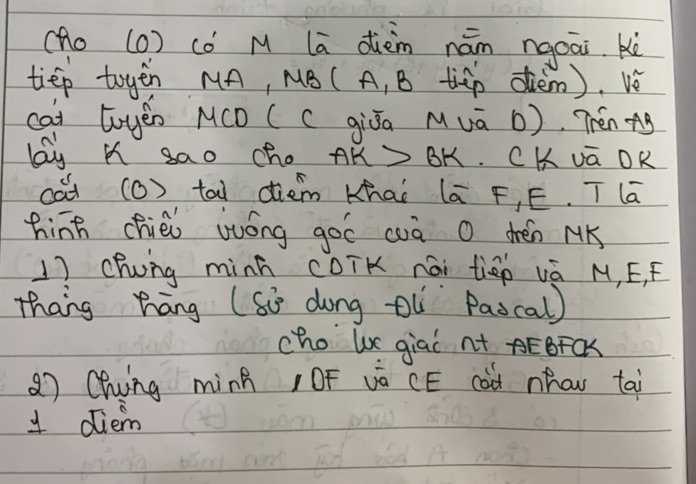 Cho (O) có M là điểm nằm ngoài. Kẻ
tiếp tuyến MA, MB ( A, B tiếp điểm). Vẽ
cát tuyến MCD ( C giữa M và D). Trên AB
lấy K sao cho AK > BK. CK và DK
cắt (O) tại điểm khác là F, E. T là
hình chiếu vuông góc của O trên MK
1) Chứng minh CDTK nội tiếp và M, E, F
thẳng hàng (Sử dụng Đlí Pascal)
cho lục giác nt AEBFCK
2) Chứng minh , DF và CE cắt nhau tại
1 điểm